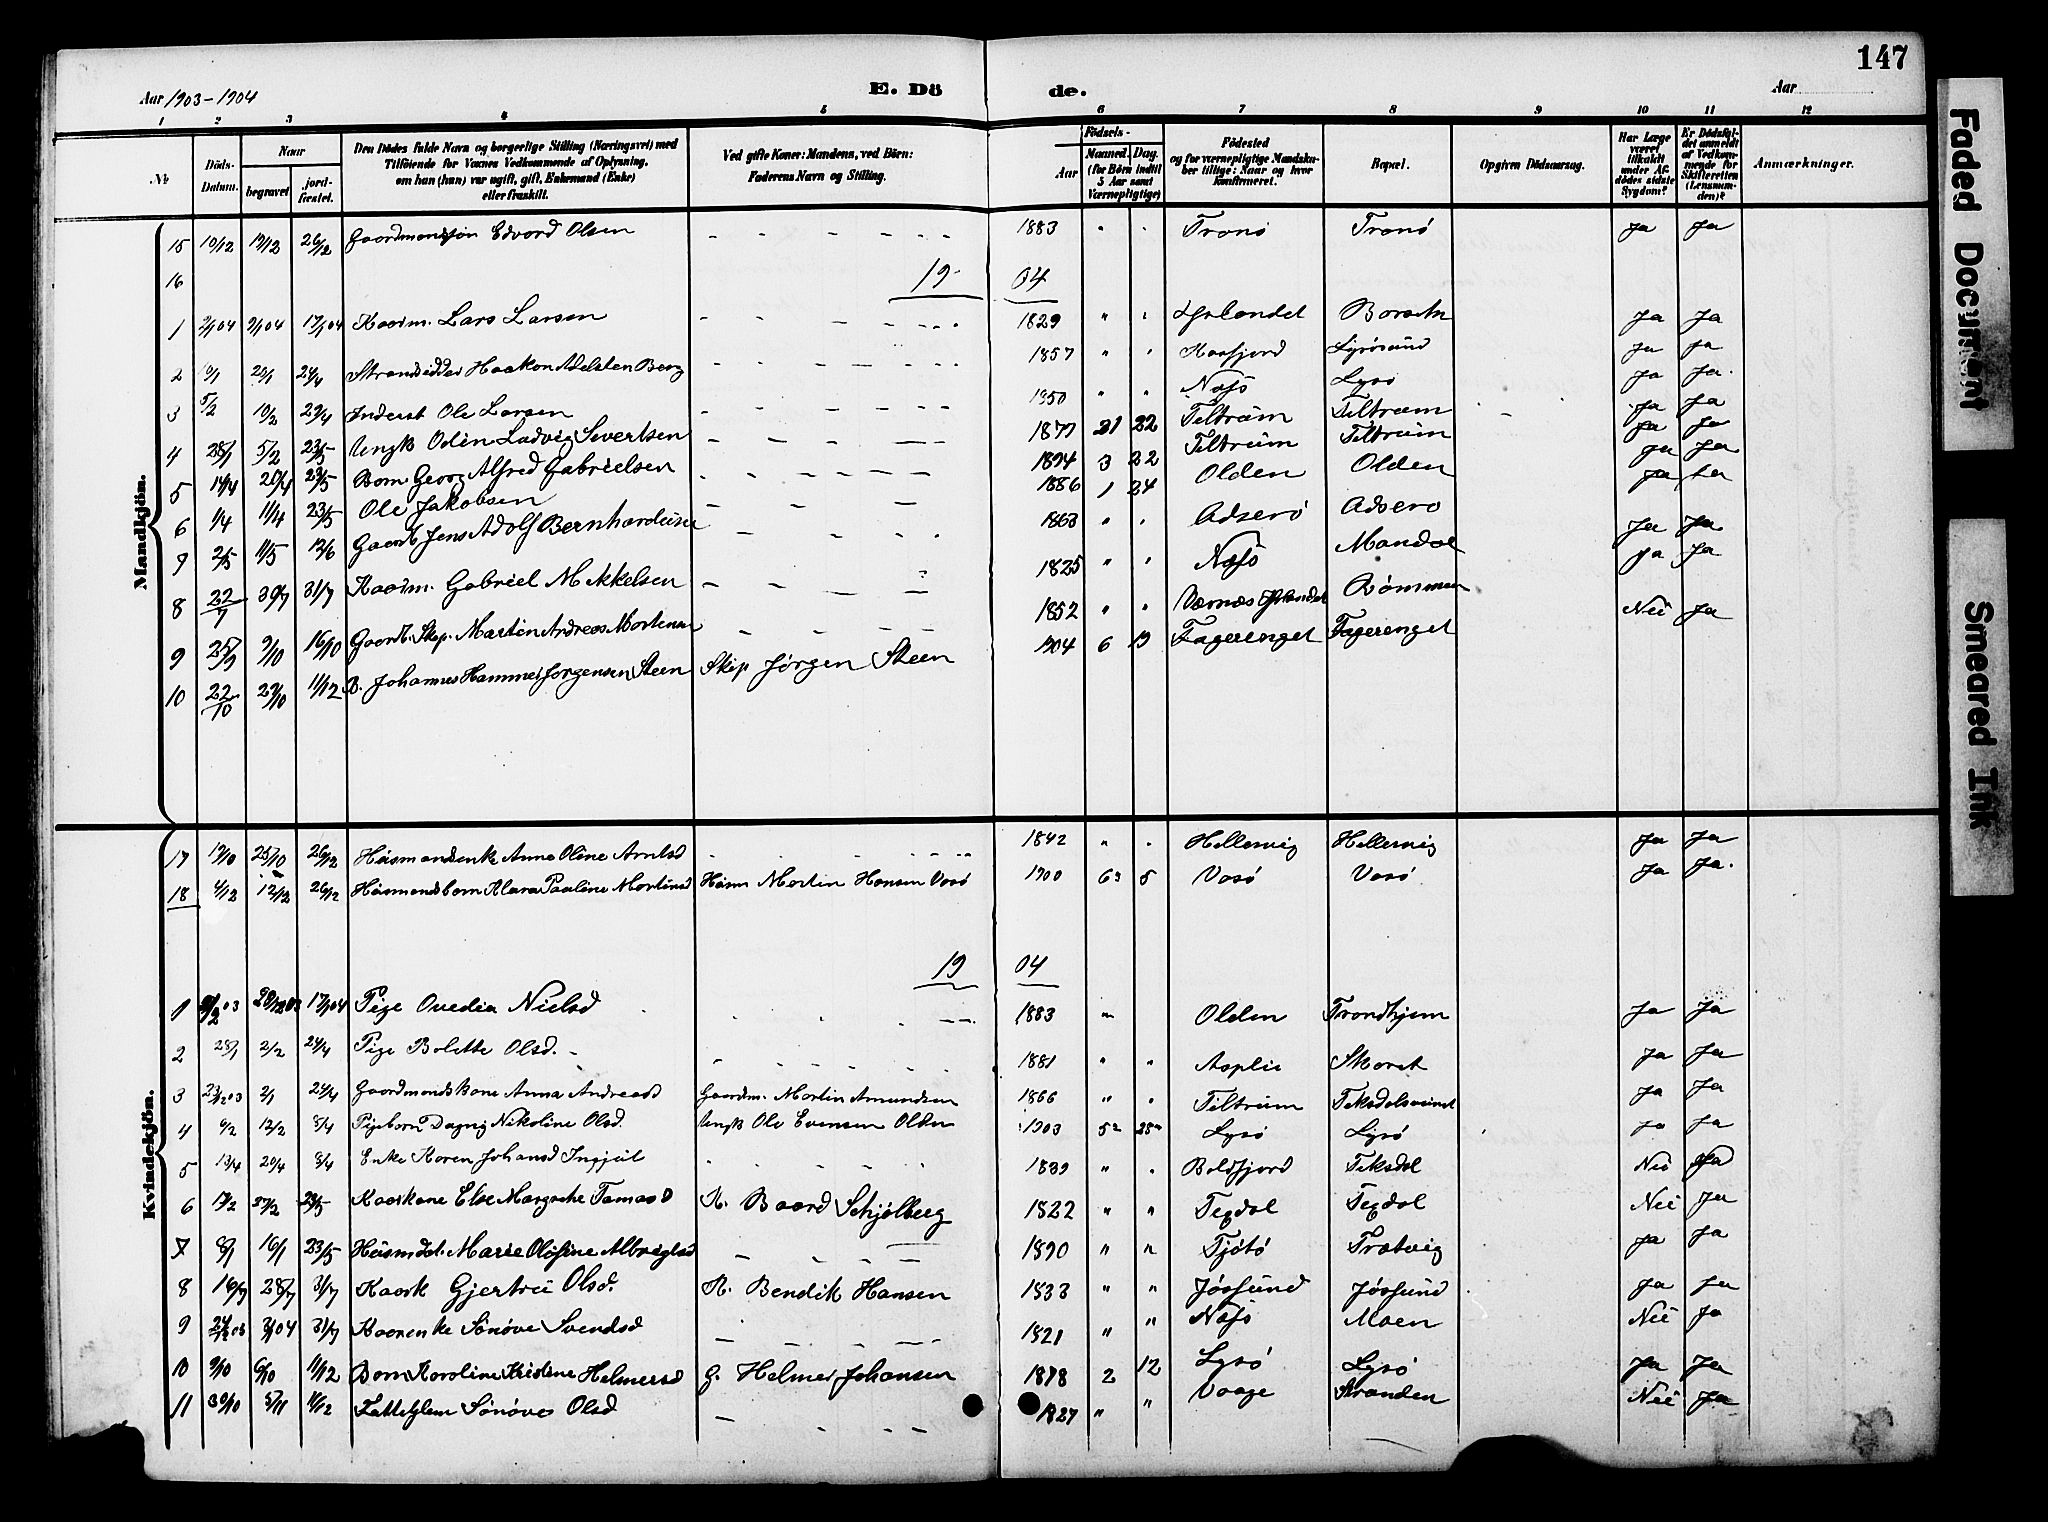 147
Aar 1903-1904 E. Dö de. Aar
1 2 3 4 5 6 7 8 9 10 11 12
№ Döds-Datum. Naar begravet jord-fæstet. Den Dödes fulde Navn og borgerlige Stilling (Næringsvei) med Tilföiende for Voxnes Vedkommende af Oplysning, om han (hun) var ugift, gift, Enkemand (Enke) eller fraskilt. Ved gifte Koner: Mandens, ved Börn: Faderens Navn og Stilling. Födsels- Aar Maaned. Dag. (for Börn indtil 5 Aar samt Værnepligtige) Födested og for værnepligtige Mandskaber tillige: Naar og hvor Konfirmeret. Bopæl. Opgiven Dödsaarsag. Har Læge været tilkaldt under Afdödes sidste Sygdom? Er Dödsfaldet anmeldt af Vedkommende for Skifteretten (Lensmanden)? Anmærkninger.
Mandkjön.
15 10/12 19/12 26/12 Gaardmandssøn Edvard Olsen - - - - - 1883 " " Tranø Tranø Ja Ja
16
19 04
1 2/1 04 9/1 04 17/1 04 Kaarm. Lars Larsen - - - - - 1829 " " Borsetn Ja Ja
2 10/1 20/1 24/4 Haakon Adelsten Berg - - - - - 1857 " " Kaasfjord Lysøsund Ja Ja
3 5/2 10/2 24/4 Inderst Ole Larsen - - - - 1850 " " Næsø Lysø Ja Ja.
4 28/1 5/2 23/5 Ungk Odin Ludvig Sivertsen - - - - 1877 21 22 Teltrum Teltrum Ja Ja
5 14/4 20/4 23/5 Barn Georg Alfred Gabrielsen - - - - 1894 3 22 Teltrum Teltrum Ja Ja
6 1/4 11/4 23/5 Ole Jakobsen - - - - 1886 1 24 Olden Olden Ja Ja
7 2/5 11/5 12/6 Gaardb Jens Adolf Bernhardsen - - - 1863 " " Adserø Adserø Ja Ja
8 22/7 30/7 31/7 Kaarm. Gabriel Mikkelsen - - - 1825 " " Næsø Mandal Ja Ja
9 25/9 9/10 16/10 Gaardb. Skip. Martin Andreas Mortensen - - - 1852 " " Værnæs Rømmen Ja Ja
10 22/10 29/10 11/12 B. Johannes Hammer Jørgensen Steen Skip Jørgen Steen 1904 6 19 Fagerenget Fagerenget Nei Ja
Kvindekjön.
17 19/10 25/10 26/12 Husmandsenke Anne Oline Arntsd - - - - - 1842 " " Hellesvig Hellesvig Ja Ja
18 4/12 12/12 26/12 Husmandsbarn Klara Pauline Martinsd Husm Martin Hansen Vasø 1900 6 5 Vasø Vasø Ja Ja.
19 04
1 03 28/12 03 17/1 04 Pige Ovedia Nielsd - - - - 1883 " Olden Trondhjem Ja Ja
2 28/1 2/2 24/4 Pige Bolette Olsd. - - - - - 1881 " " Asplie Skaret Ja Ja
3 23/12 03 2/1 24/4 Gaardmandskone Anna Andreasd Gaardm. Martin Amundsen 1866 " " Teltrum Teksdalsvandt Ja Ja
4 6/2 12/2 8/4 Pigebarn Dagny Nikoline Olsd. Ungk Ole Evensen Olden 1903 5 28 Lysø Lysø Ja Ja
5 13/4 20/4 8/4 Enke Karen Johansd - - - - - 1839 " " Boldfjord Teksdal Nei Ja
6 19/2 27/2 23/5 Kaarkone Else Margrete Tomasd K. Baard Schjølberg 1822 " " Texdal Texdal Nei Ja
7 8/1 16/1 23/5 Husmdt. Marie Olufine Albrigtsd - - - 1890 " " Tjøtø Trætvig Ja Ja
8 19/7 28/7 31/7 Kaark Gjertru Olsd. K. Bendik Hansen 1833 " " Jøssund Jøssund Ja Ja
9 24/ 03 3/1 04 31/7 Kaarenke Sønøve Svendsd - - - - 1821 " " Næsø Moen Nei Ja
10 9/10 6/10 11/12 Barn Karoline Kristine Helmersd G. Helmer Johansen 1878 2 12 Lysø Lysø Ja Ja
11 30/10 5/11 11/12 Fattiglem Sønøve Olsd - - - 1827 " " Vaage Stranden Nei Ja
Faded Document
Smeared Ink